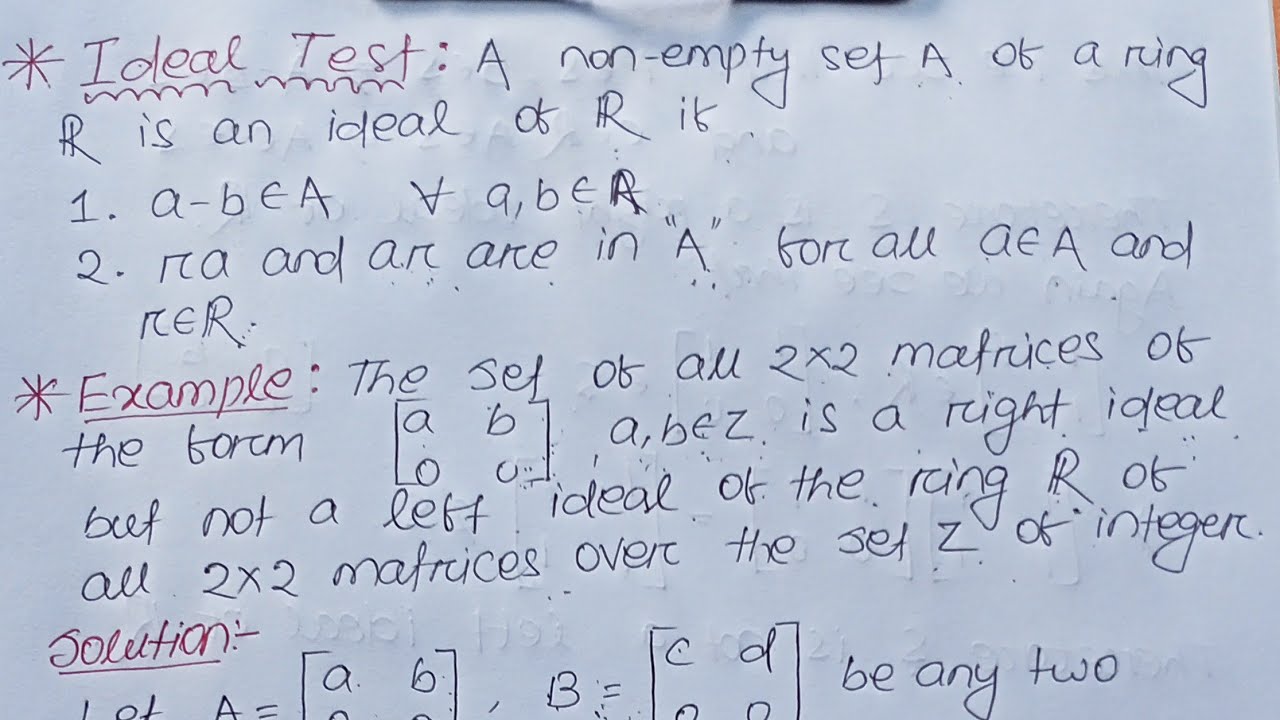 * Ideal Test: A non-empty set A of a ring
R is an ideal of R if
1. a-b∈A ∀ a,b∈A
2. ra and ar are in "A" for all a∈A and
r∈R.
* Example: The set of all 2×2 matrices of
the form [a b; 0 0], a,b∈Z is a right ideal
but not a left ideal of the ring R of
all 2×2 matrices over the set Z of integer.
Solution:-
Let A = [a b; 0 0], B = [c d; 0 0] be any two